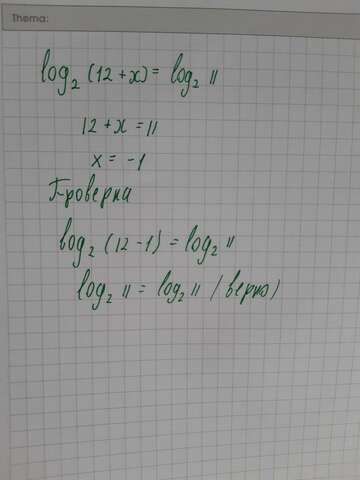 Thema:
log₂ (12 + x) = log₂ 11
12 + x = 11
x = -1
Проверка
log₂ (12 - 1) = log₂ 11
log₂ 11 = log₂ 11 (верно)